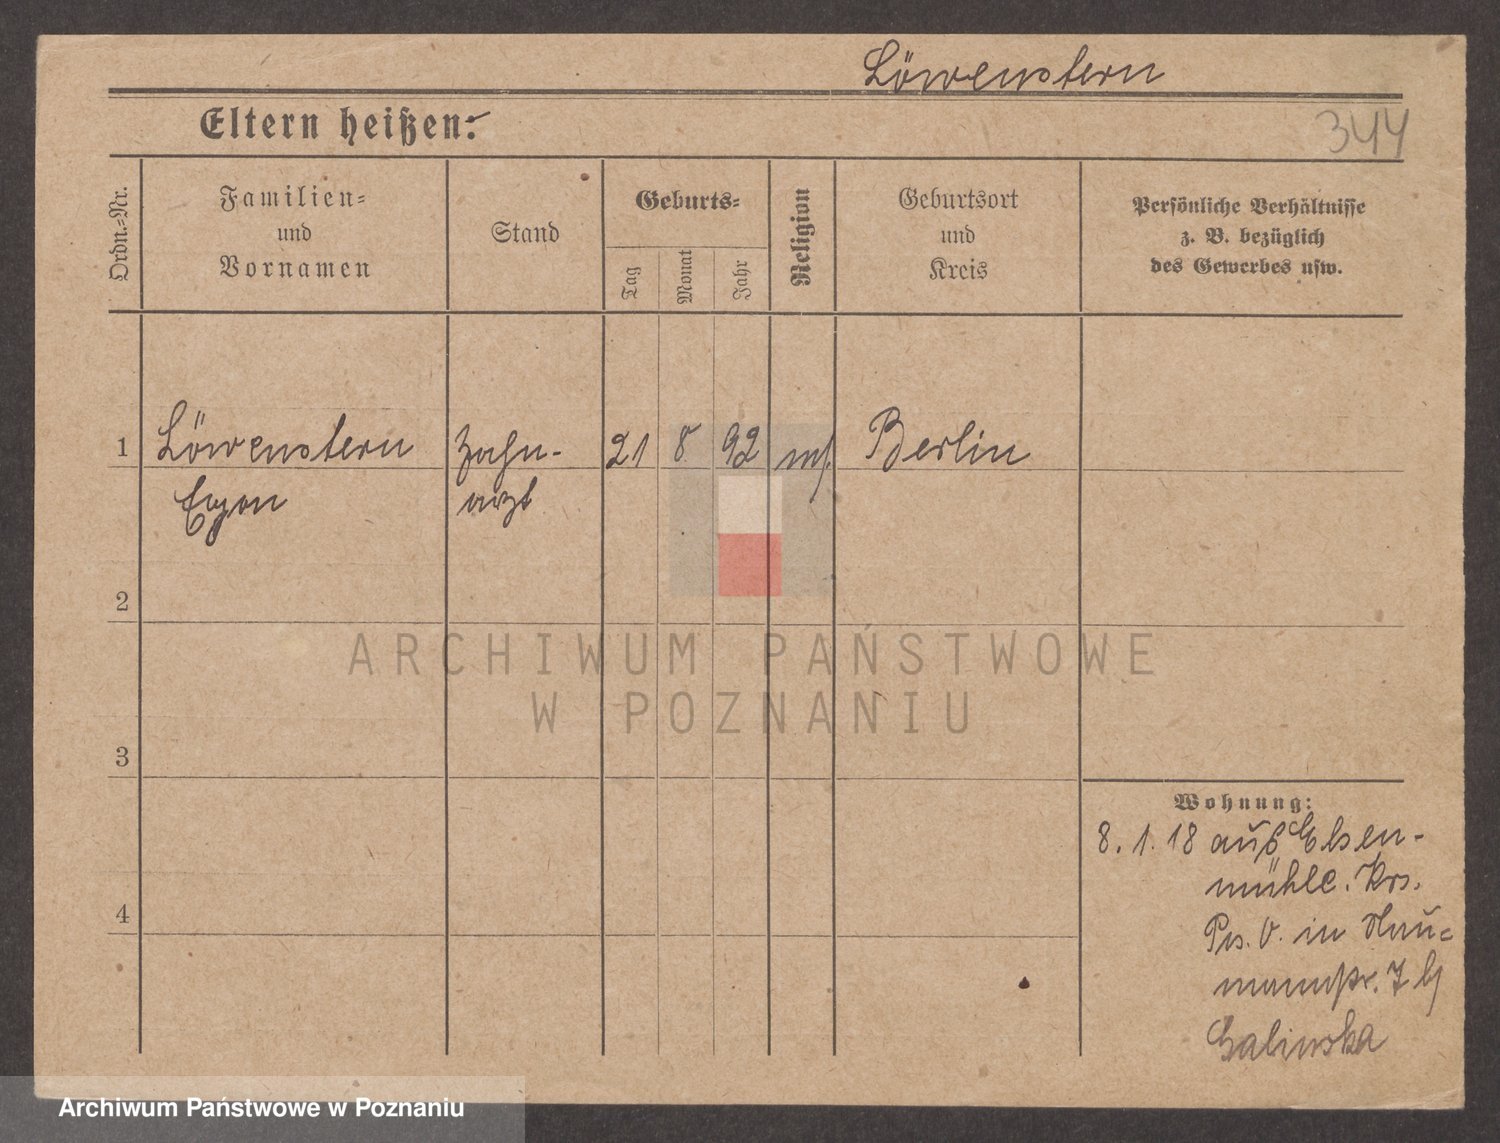 Löwenstern
Eltern heißen:
344
Ordn.-Nr.
Familien-
und
Vornamen
Stand
Geburts-
Tag
Monat
Jahr
Religion
Geburtsort
und
Kreis
Persönliche Verhältnisse
z. B. bezüglich
des Gewerbes usw.
1
Löwenstern
Egon
Zahn-
arzt
21
8
92
Berlin
2
ARCHIWUM PAŃSTWOWE
W POZNANIU
3
4
Wohnung:
8. 1. 18 aus Elsen-
mühle. Krs.
Ps. O. in Nau-
mannstr. 7 b/
Galinska
Archiwum Państwowe w Poznaniu